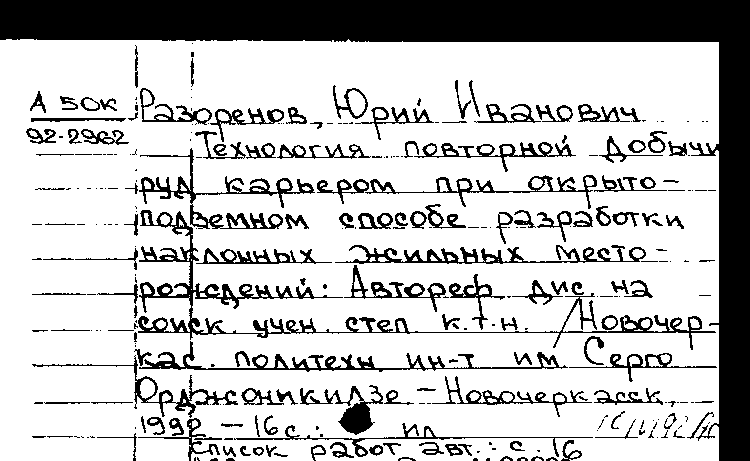 А 50К Разоренов, Юрий Иванович
92-2962 Технология повторной добычи
руд карьером при открыто-
подземном способе разработки
наклонных жильных место-
рождений: Автореф. дис. на
соиск. учен. степ к.т.н. / Новочер-
кас. политехн. ин-т им. Серго
Орджоникидзе. - Новочеркасск,
1992 - 16 с.: ил
Список работ авт.: с. 16